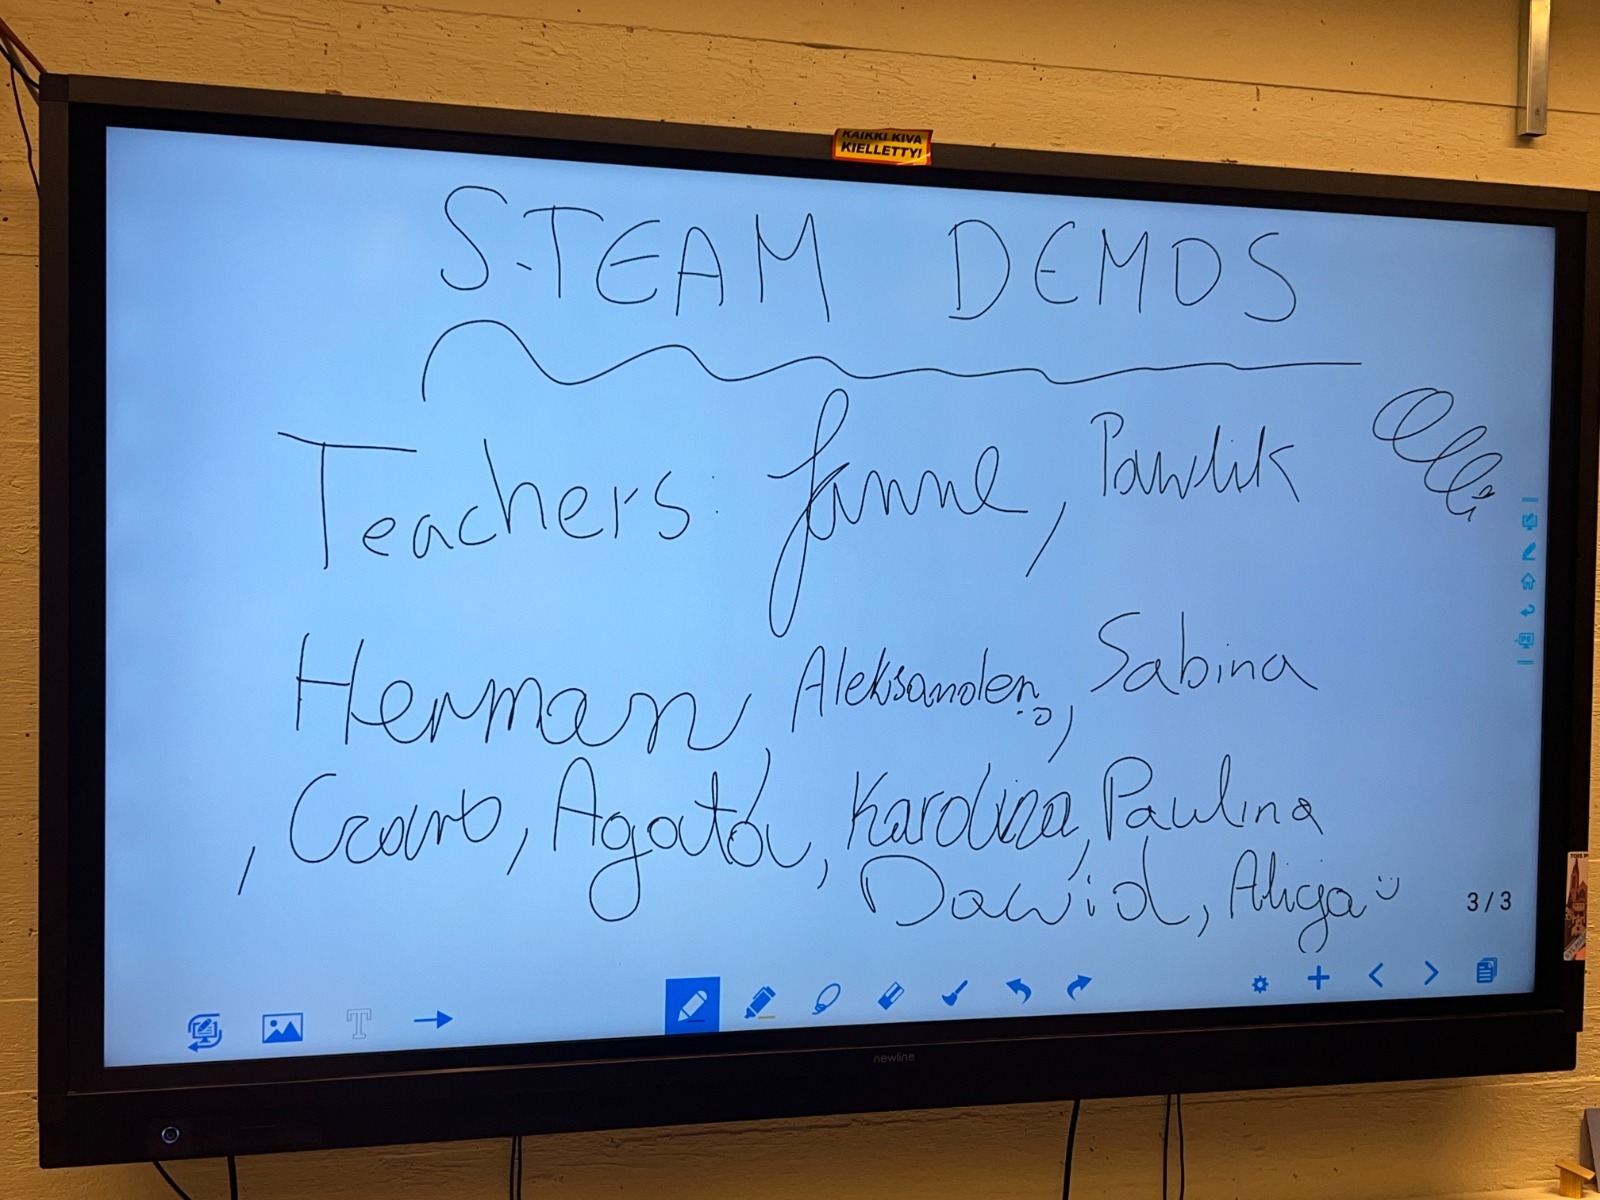 KAIKKI KIVA
KIELLETTY!
S-TEAM DEMOS
Teachers: Janne, Pawlik
Olli
Herman, Aleksander, Sabina
, Agata, Karolina, Paulina
Dawid, Alicja
3/3
T
newline